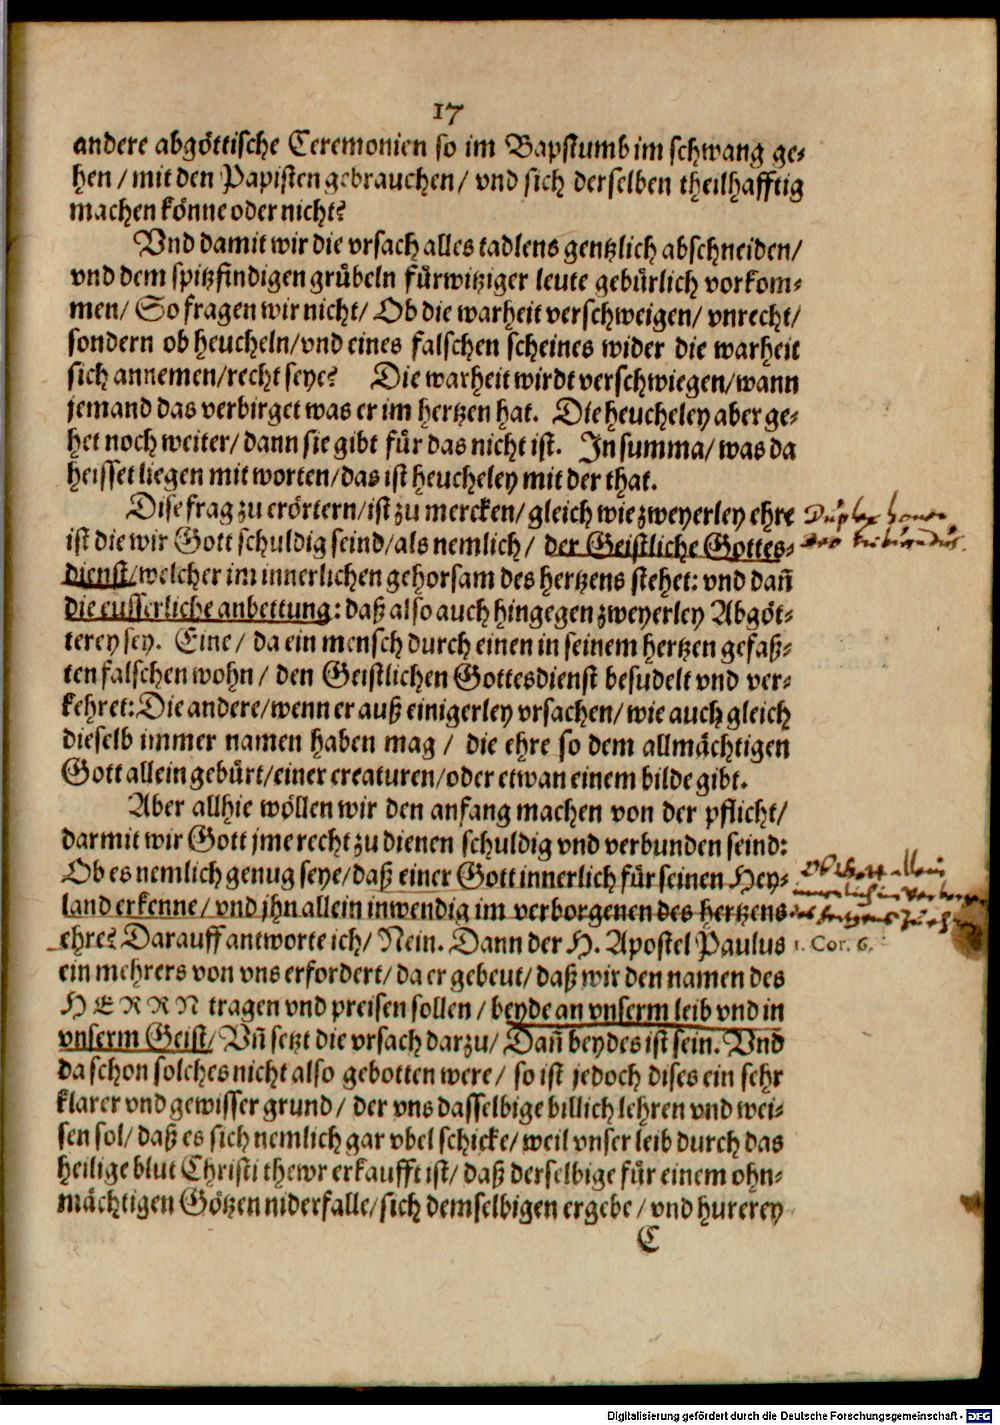 17
andere abgöttische Ceremonien so im Bapstumb im schwang ge⸗
hen / mit den Papisten gebrauchen / vnd sich derselben theilhafftig
machen könne oder nicht?
Vnd damit wir die vrsach alles tadlens gentzlich abschneiden /
vnd dem spitzfindigen grübeln fürwitziger leute gebürlich vorkom⸗
men / So fragen wir nicht / Ob die warheit verschweigen / vnrecht /
sondern ob heucheln / vnd eines falschen scheines wider die warheit
sich annemen / recht seye? Die warheit wirdt verschwiegen / wann
jemand das verbirget was er im hertzen hat. Die heucheley aber ge⸗
het noch weiter / dann sie gibt für das nicht ist. In summa / was da
heisset liegen mit worten / das ist heucheley mit der that.
Dise frag zu erörtern / ist zu mercken / gleich wie zweyerley ehre
ist die wir Gott schuldig seind / als nemlich / der Geistliche Gottes⸗
dienst / welcher im innerlichen gehorsam des hertzens stehet: vnd dañ
die eusserliche anbettung: daß also auch hingegen zweyerley Abgöt⸗
terey sey. Eine / da ein mensch durch einen in seinem hertzen gefaß⸗
ten falschen wohn / den Geistlichen Gottesdienst besudelt vnd ver⸗
kehret: Die andere / wenn er auß einigerley vrsachen / wie auch gleich
dieselb immer namen haben mag / die ehre so dem allmächtigen
Gott allein gebürt / einer creaturen / oder etwan einem bilde gibt.
Aber allhie wöllen wir den anfang machen von der pflicht /
darmit wir Gott jme recht zu dienen schuldig vnd verbunden seind:
Ob es nemlich genug seye / daß einer Gott innerlich für seinen Hey⸗
land erkenne / vnd jhn allein inwendig im verborgenen des hertzens
ehre? Darauff antworte ich / Nein. Dann der H. Apostel Paulus
ein mehrers von vns erfordert / da er gebeut / daß wir den namen des
HERRN tragen vnd preisen sollen / beyde an vnserm leib vnd in
vnserm Geist / Vñ setzt die vrsach darzu / Dañ beydes ist sein. Vnd
da schon solches nicht also gebotten were / so ist jedoch dises ein sehr
klarer vnd gewisser grund / der vns dasselbige billich lehren vnd wei⸗
sen sol / daß es sich nemlich gar vbel schicke / weil vnser leib durch das
heilige blut Christi thewr erkaufft ist / daß derselbige für einem ohn⸗
mächtigen Götzen niderfalle / sich demselbigen ergebe / vnd hurerey
C
Duplex honor
Deo tribuendus.
Ob Gott allein
1. Cor. 6.
Digitalisierung gefördert durch die Deutsche Forschungsgemeinschaft - DFG